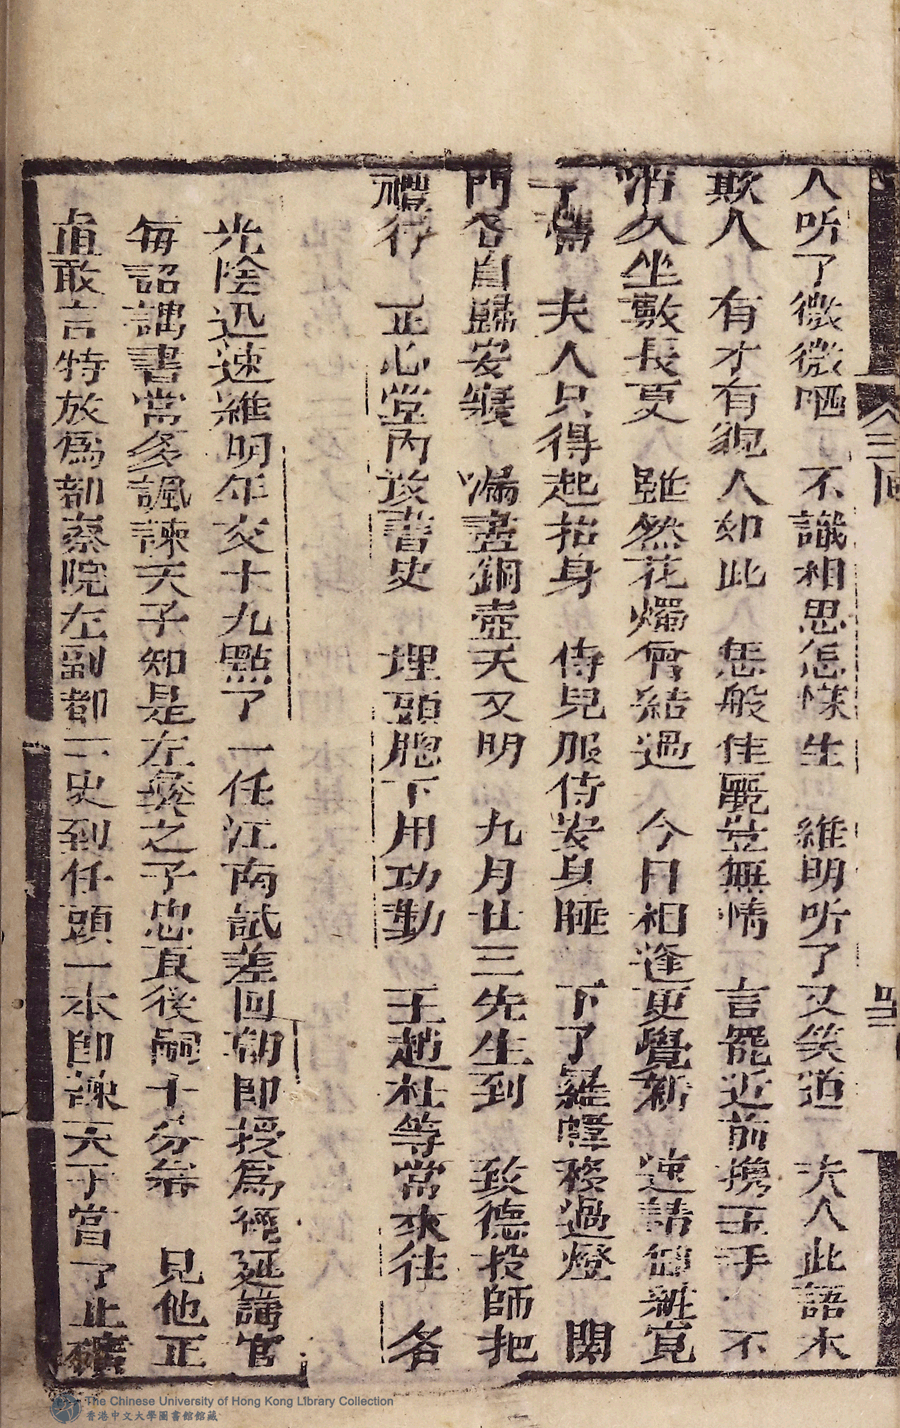 人听了微微哂　不識相思怎樣生　維明听了又笑道　夫人此語木
欺人　有才有貌人如此　怎般佳麗豈無情　言罷近前携玉手　不
消久坐數長更　雖然花燭曾結過　今日相逢更覺新　速請卸粧寬
了　夫人只得起抬身　侍兒服侍安身睡　下了羅幃移過燈　関
門各自歸安寢　漏盡銅壺天又明　九月廿三先生到　致德投師把
禮行　正心堂內設書史　埋頭胞下用功勤　王趙杜等常來往　各
光陰迅速維明年交十九點了一任江南試差回朝即授爲經延講官
每詔講書常多諷諫天子知是左彝之子忠直後嗣十分　見他正
直敢言特放爲都察院左副都　史到任頭一本即諫天子當了止礦
三回
The Chinese University of Hong Kong Library Collection
香港中文大學圖書館館藏